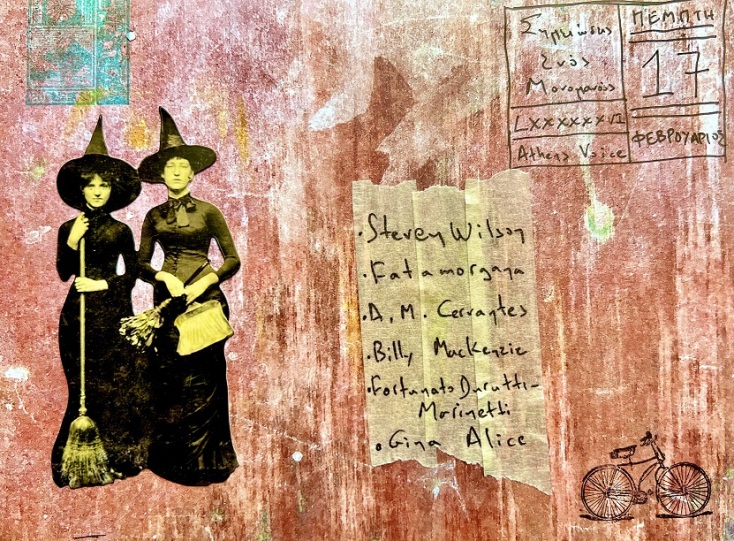 Σημειώσεις
Ενός
Μονομανούς
LXXXXXXVI
Athens Voice
ΠΕΜΠΤΗ
17
ΦΕΒΡΟΥΑΡΙΟΣ
• Steven Wilson
• Fatamorgana
• A.M. Cervantes
• Billy MacKenzie
• Fortunato Durutti-
Marinetti
• Gina Alice